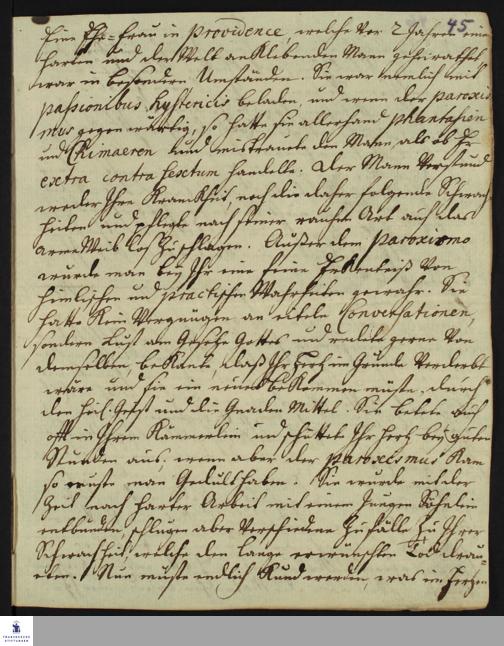 45
Eine Ehe-Frau in providence, welche vor 2 Jahren einen
harten und der Welt anklebenden Mann geheirathet
war in besondern Umständen. Sie war nemlich mit
passionibus hystericis beladen, und wenn der paroxis
mus gegenwärtig, so hatte sie allerhand phantasien
und Chimaeren und mistrauete den Mann, als ob Er
extra contra sextum handelte. Der Mann verstund
weder Ihre Kranckheit, noch die daher folgende Schwach
heiten und pflegte nach seiner rauhen Art auch das
arme Weib los zu schlagen. Ausser dem paroxismo
wurde man bey Ihr eine feine Erkenntniß von
himlischen und practischen Wahrheiten gewahr. Sie
hatte kein Vergnügen an eiteln Conversationen,
sondern Lust am Gesetze Gottes und redete gerne von
demselben, bekante, daß Ihr Hertz im Grunde verderbt
wäre und sie ein neues bekommen müste, durch
den heil. Geist und die Gnaden Mittel. Sie betete auch
offt in Ihrem Kämmerlein und schüttete Ihr Hertz bey guten
Stunden aus, wenn aber der paroxismus kam
so muste man Gedult haben. Sie wurde mit der
Zeit nach harter Arbeit mit einem jungen Söhnlein
entbunden, schlugen aber verschiedene Zufälle zu Ihrer
Schwachheit, welche den lange erwünschten Tod drau-
eten. Nun muste endlich kund werden, was im Hertzen
FRANCKESCHE
STIFTUNGEN